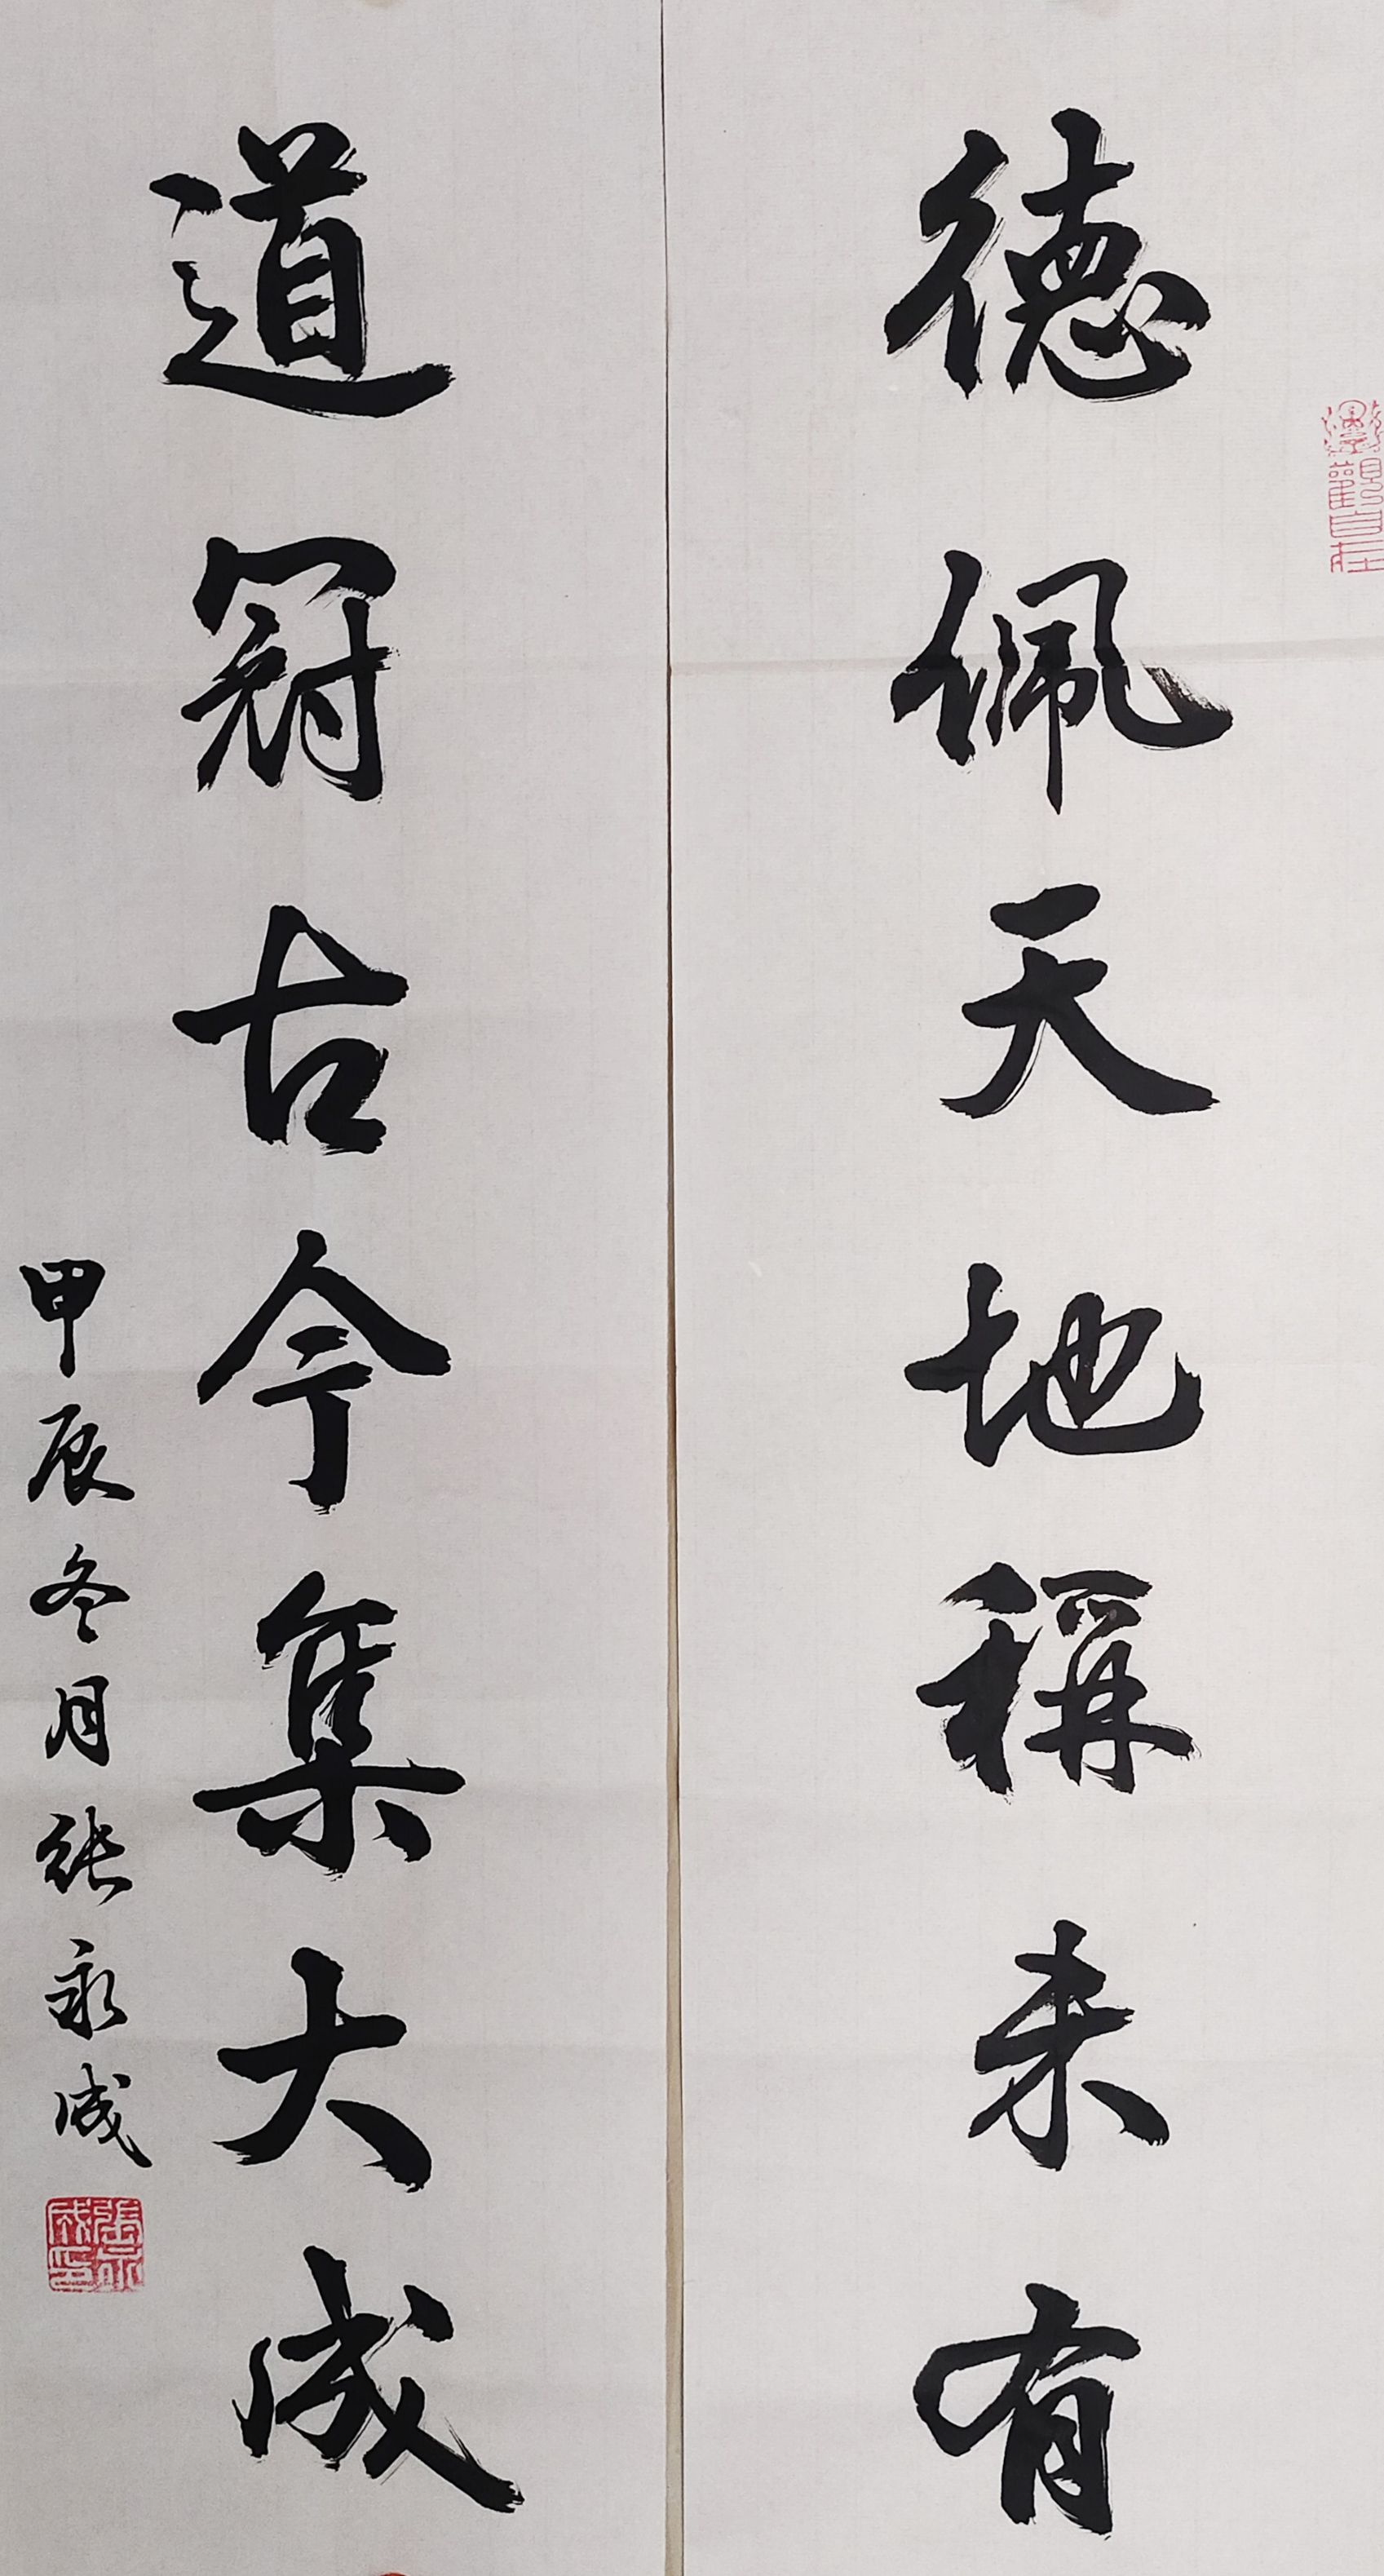 德佩天地稱未有
道冠古今集大成
甲辰冬月张永成
張永成印